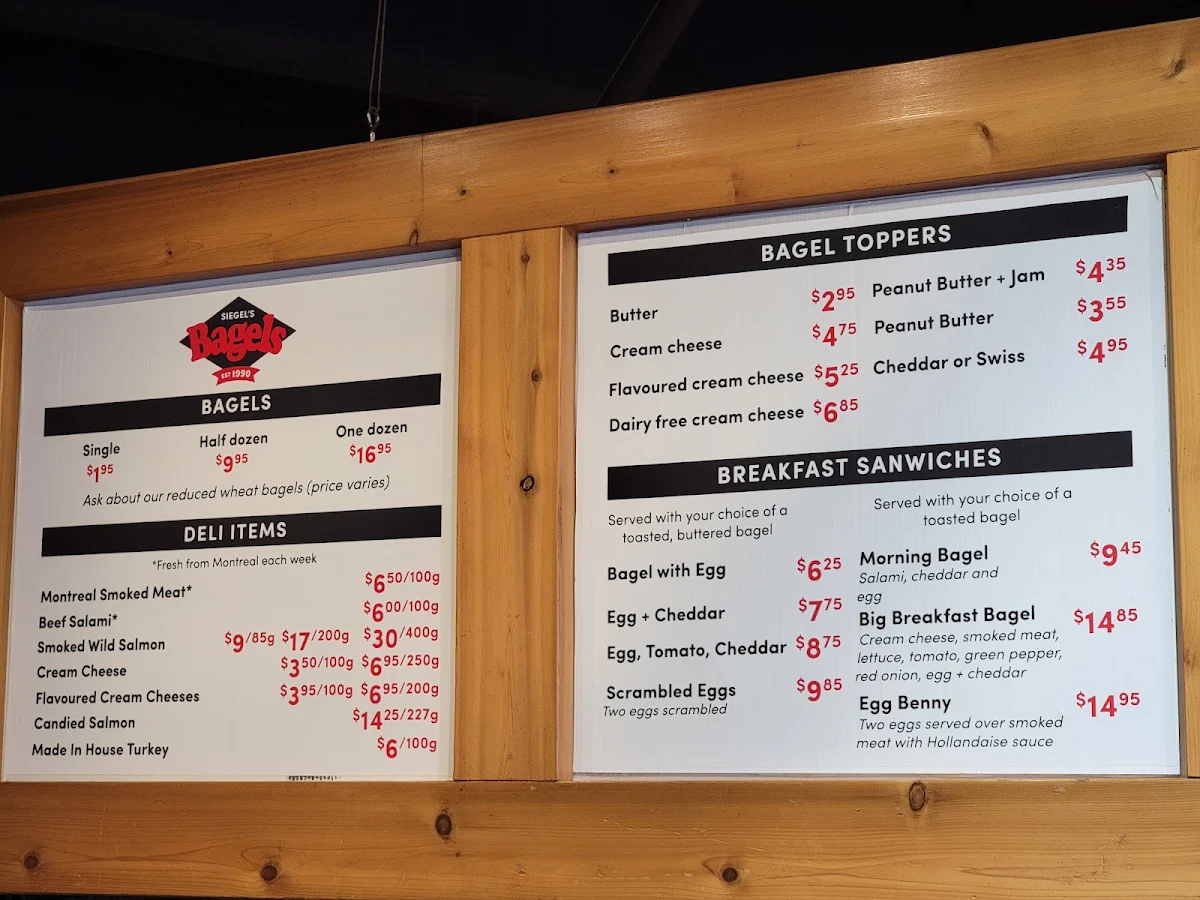 SIEGEL'S
Bagels
EST 1990
BAGELS
Single Half dozen One dozen
$1.95 $9.95 $16.95
Ask about our reduced wheat bagels (price varies)
DELI ITEMS
*Fresh from Montreal each week
Montreal Smoked Meat* $6.50/100g
Beef Salami* $6.00/100g
Smoked Wild Salmon $9/85g $17/200g $30/400g
Cream Cheese $3.50/100g $6.95/250g
Flavoured Cream Cheeses $3.95/100g $6.95/200g
Candied Salmon $14.25/227g
Made In House Turkey $6/100g
BAGEL TOPPERS
Butter $2.95
Cream cheese $4.75
Flavoured cream cheese $5.25
Dairy free cream cheese $6.85
Peanut Butter + Jam $4.35
Peanut Butter $3.55
Cheddar or Swiss $4.95
BREAKFAST SANWICHES
Served with your choice of a
toasted, buttered bagel
Bagel with Egg $6.25
Egg + Cheddar $7.75
Egg, Tomato, Cheddar $8.75
Scrambled Eggs $9.85
Two eggs scrambled
Served with your choice of a
toasted bagel
Morning Bagel $9.45
Salami, cheddar and
egg
Big Breakfast Bagel $14.85
Cream cheese, smoked meat,
lettuce, tomato, green pepper,
red onion, egg + cheddar
Egg Benny $14.95
Two eggs served over smoked
meat with Hollandaise sauce